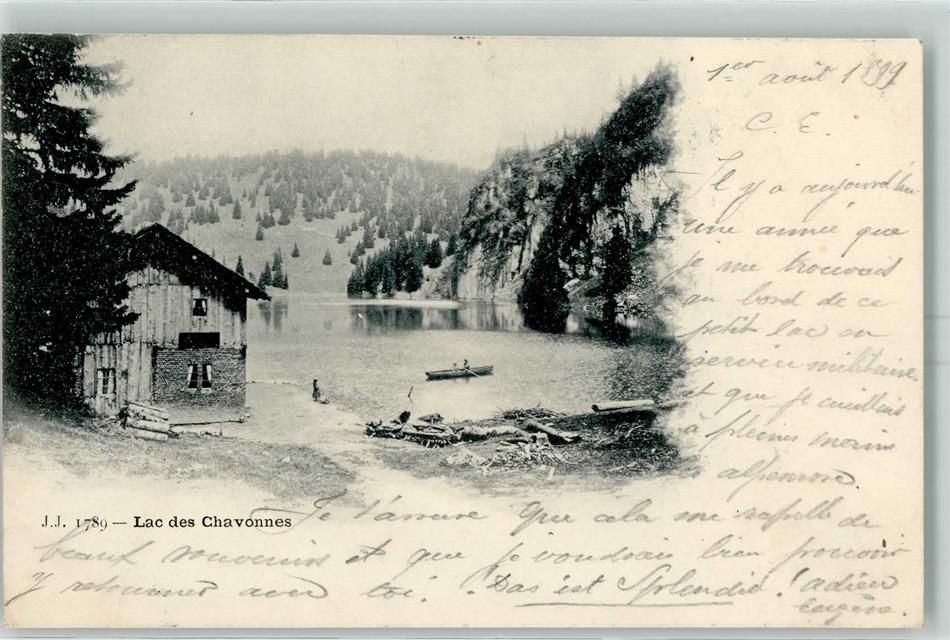 1er août 1899
C. E.
Il y a aujourd'hui
une année que
je me trouvais
au bord de ce
petit lac en
service militaire
et que je cueillis
à pleines mains
J.J. 1789 — Lac des Chavonnes
Je t'assure que cela me rappelle de
beaux souvenirs et que je voudrais bien pouvoir
y retourner avec toi. Das ist Splendid! adieu
Eugène.